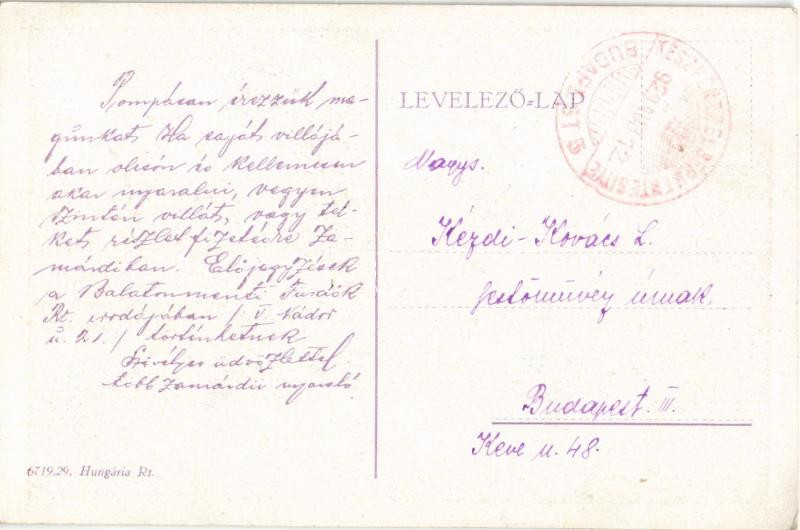 Pompásan érezzük ma-
gunkat. Ha saját villájá-
ban olcsón és kellemesen
akar nyaralni, vegyen
szintén villát, vagy tel-
ket részletfizetésre Za-
márdiban. Előjegyzések
a Balatonmenti Fürdők
Rt. irodájában /V. Nádor
u. 21./ történhetnek
Szívélyes üdvözlettel
több zamárdii nyaraló
6719.29. Hungária Rt.
LEVELEZŐ-LAP
KÉSZPÉNZZEL BÉRMENTESITVE
BUDAPEST 5
Nagys.
Kézdi-Kovács L.
festőművész úrnak
Budapest. III.
Keve u. 48.